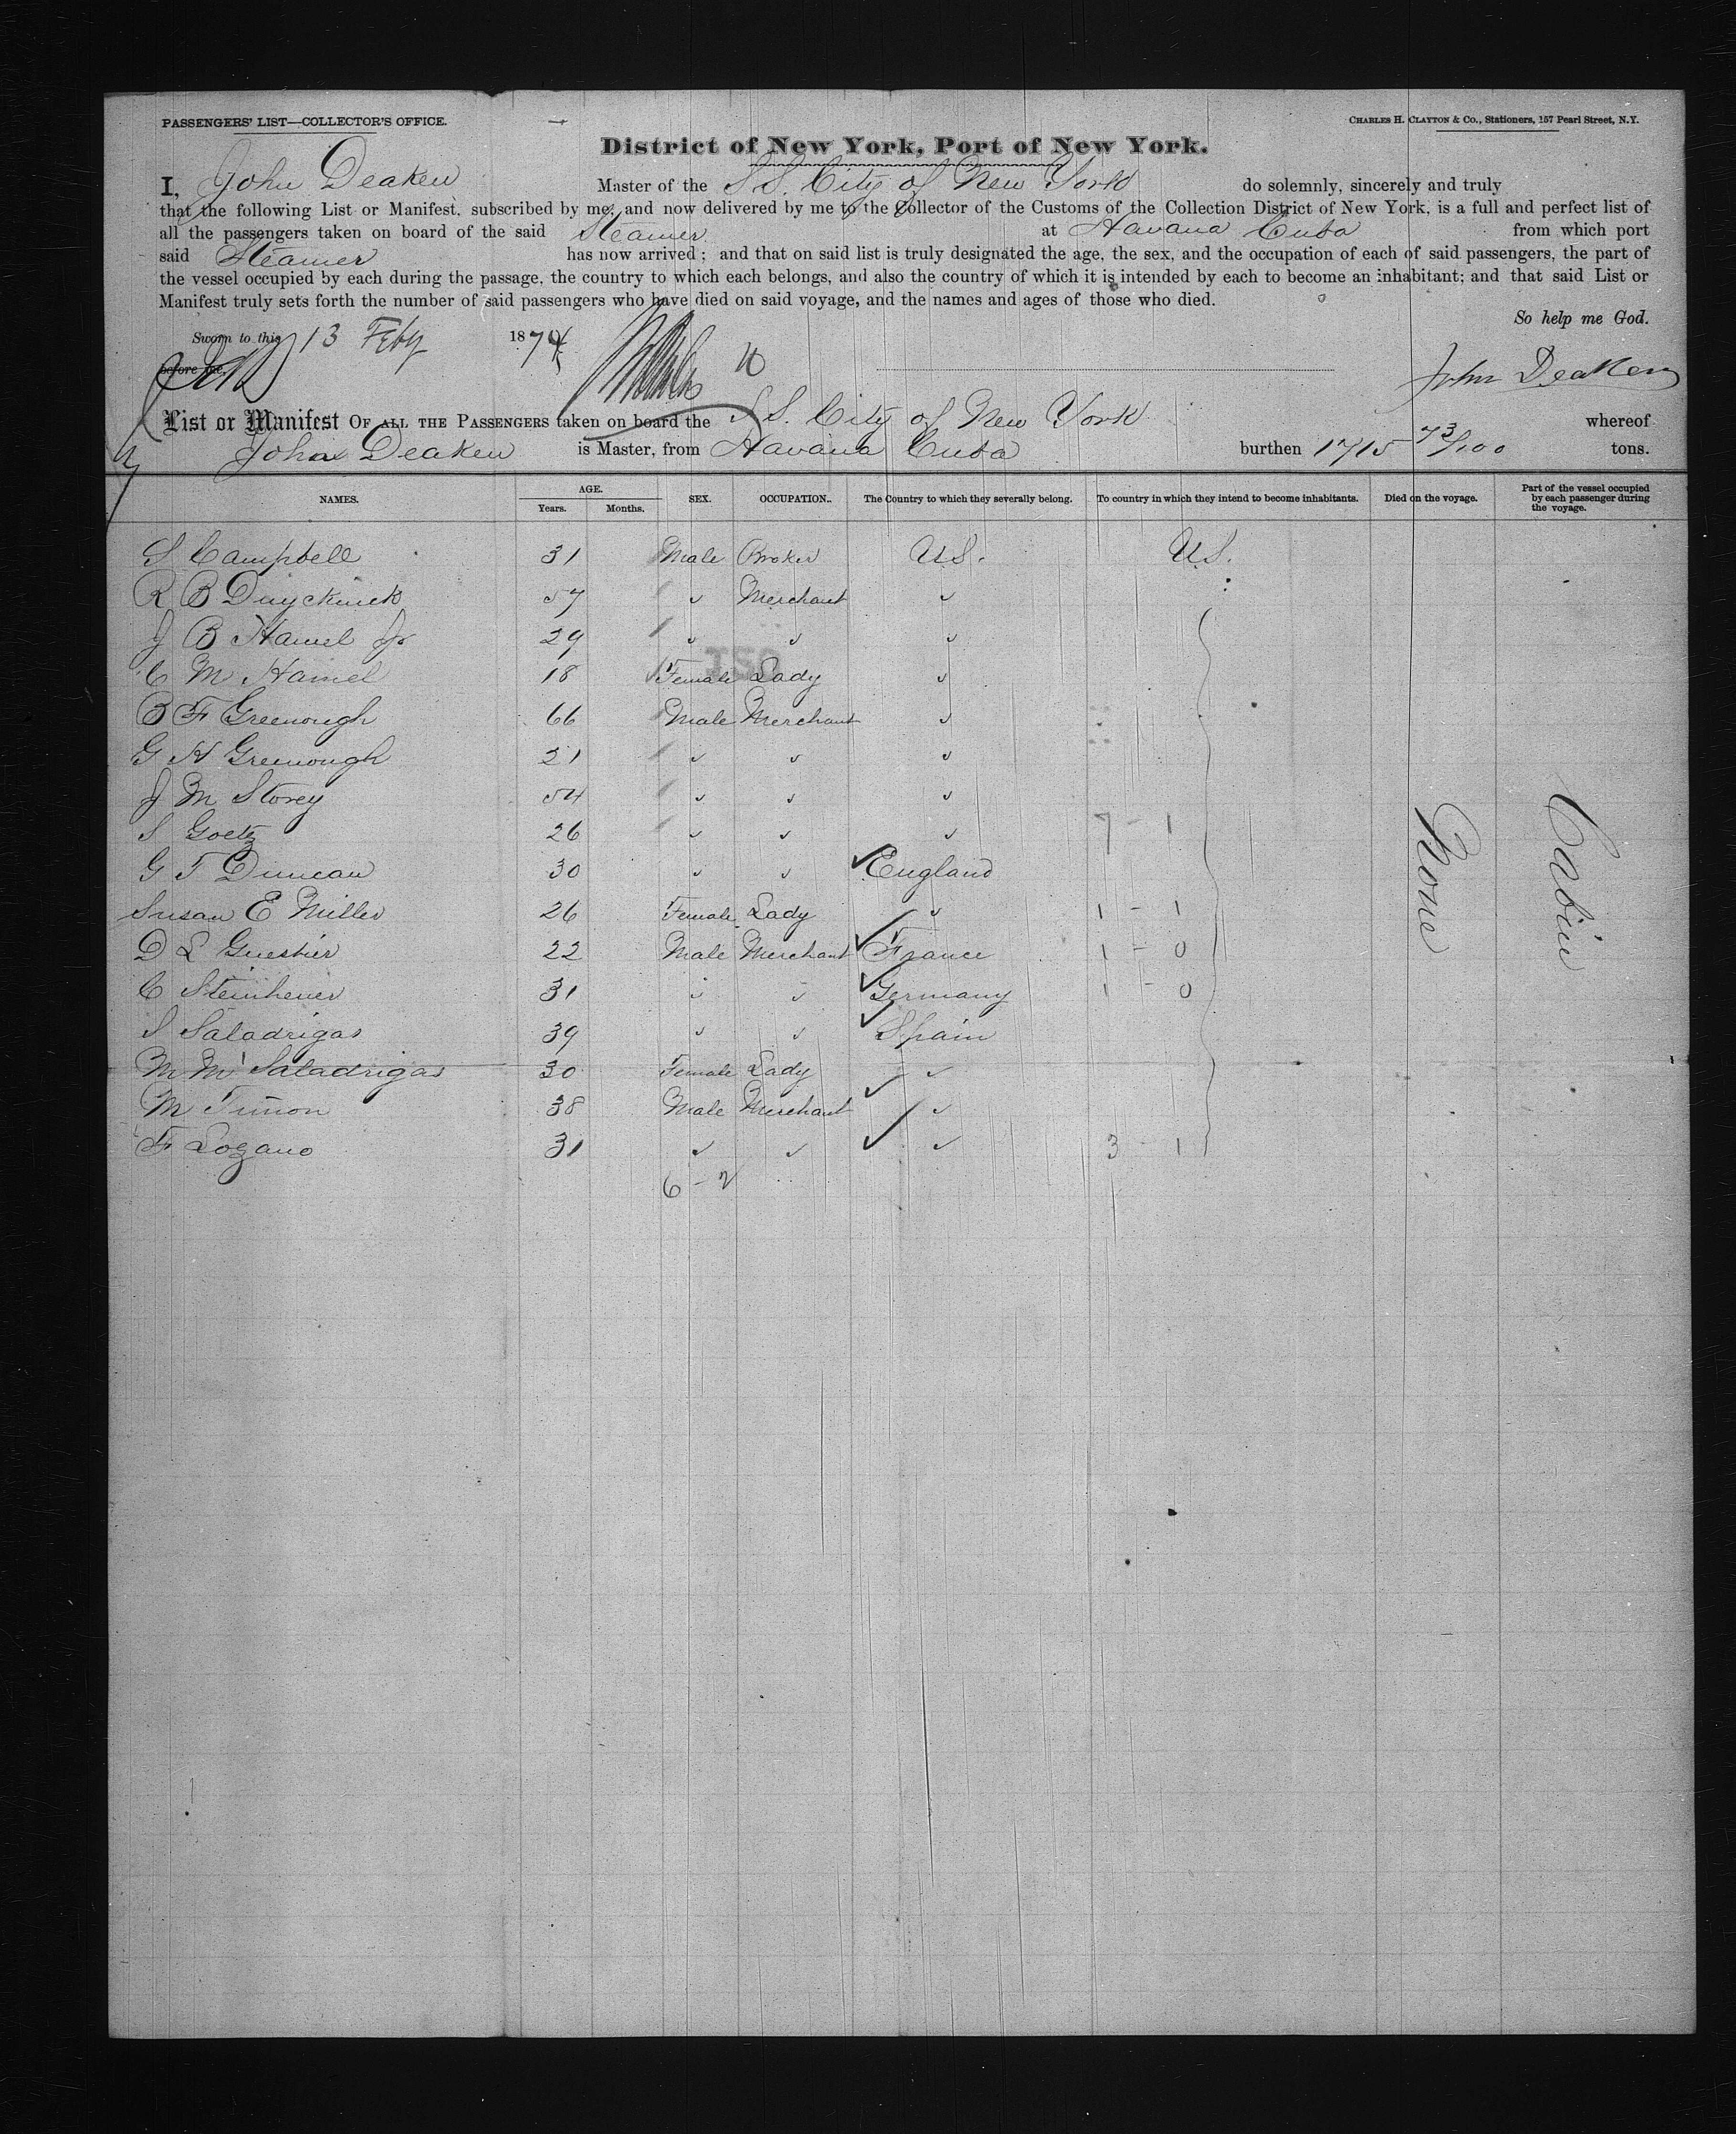 PASSENGERS' LIST—COLLECTOR'S OFFICE.
CHARLES H. CLAYTON & CO., Stationers, 157 Pearl Street, N.Y.
District of New York, Port of New York.
I, John Deaken Master of the S.S. City of New York do solemnly, sincerely and truly
that the following List or Manifest, subscribed by me, and now delivered by me to the Collector of the Customs of the Collection District of New York, is a full and perfect list of
all the passengers taken on board of the said Steamer at Havana Cuba from which port
said Steamer has now arrived; and that on said list is truly designated the age, the sex, and the occupation of each of said passengers, the part of
the vessel occupied by each during the passage, the country to which each belongs, and also the country of which it is intended by each to become an inhabitant; and that said List or
Manifest truly sets forth the number of said passengers who have died on said voyage, and the names and ages of those who died.
So help me God.
Sworn to this 13 Feby 1874
before me,
John Deaken
List or Manifest OF ALL THE PASSENGERS taken on board the S.S. City of New York whereof
John Deaken is Master, from Havana Cuba burthen 1715 73/100 tons.
NAMES. AGE. Years. Months. SEX. OCCUPATION. The Country to which they severally belong. To country in which they intend to become inhabitants. Died on the voyage. Part of the vessel occupied by each passenger during the voyage.
S Campbell 31 Male Broker U.S. U.S.
R B Duyckinck 57 " Merchant "
J B Hamel Jr 29 " " "
C M Hamel 18 Female Lady "
B F Greenough 66 Male Merchant "
G H Greenough 21 " " "
J M Storey 54 " " "
S Goetz 26 " " " 7 - 1
G T Duncan 30 " " England
Susan E Miller 26 Female Lady " 1 - 1
D L Guestier 22 Male Merchant France 1 - 0
C Steinhener 31 " " Germany 1 - 0
S Saladrigas 39 " " Spain
M M Saladrigas 30 Female Lady "
M Tuñon 38 Male Merchant "
F Lozano 31 " " " 3 - 1
6 - 2
None
Cabin